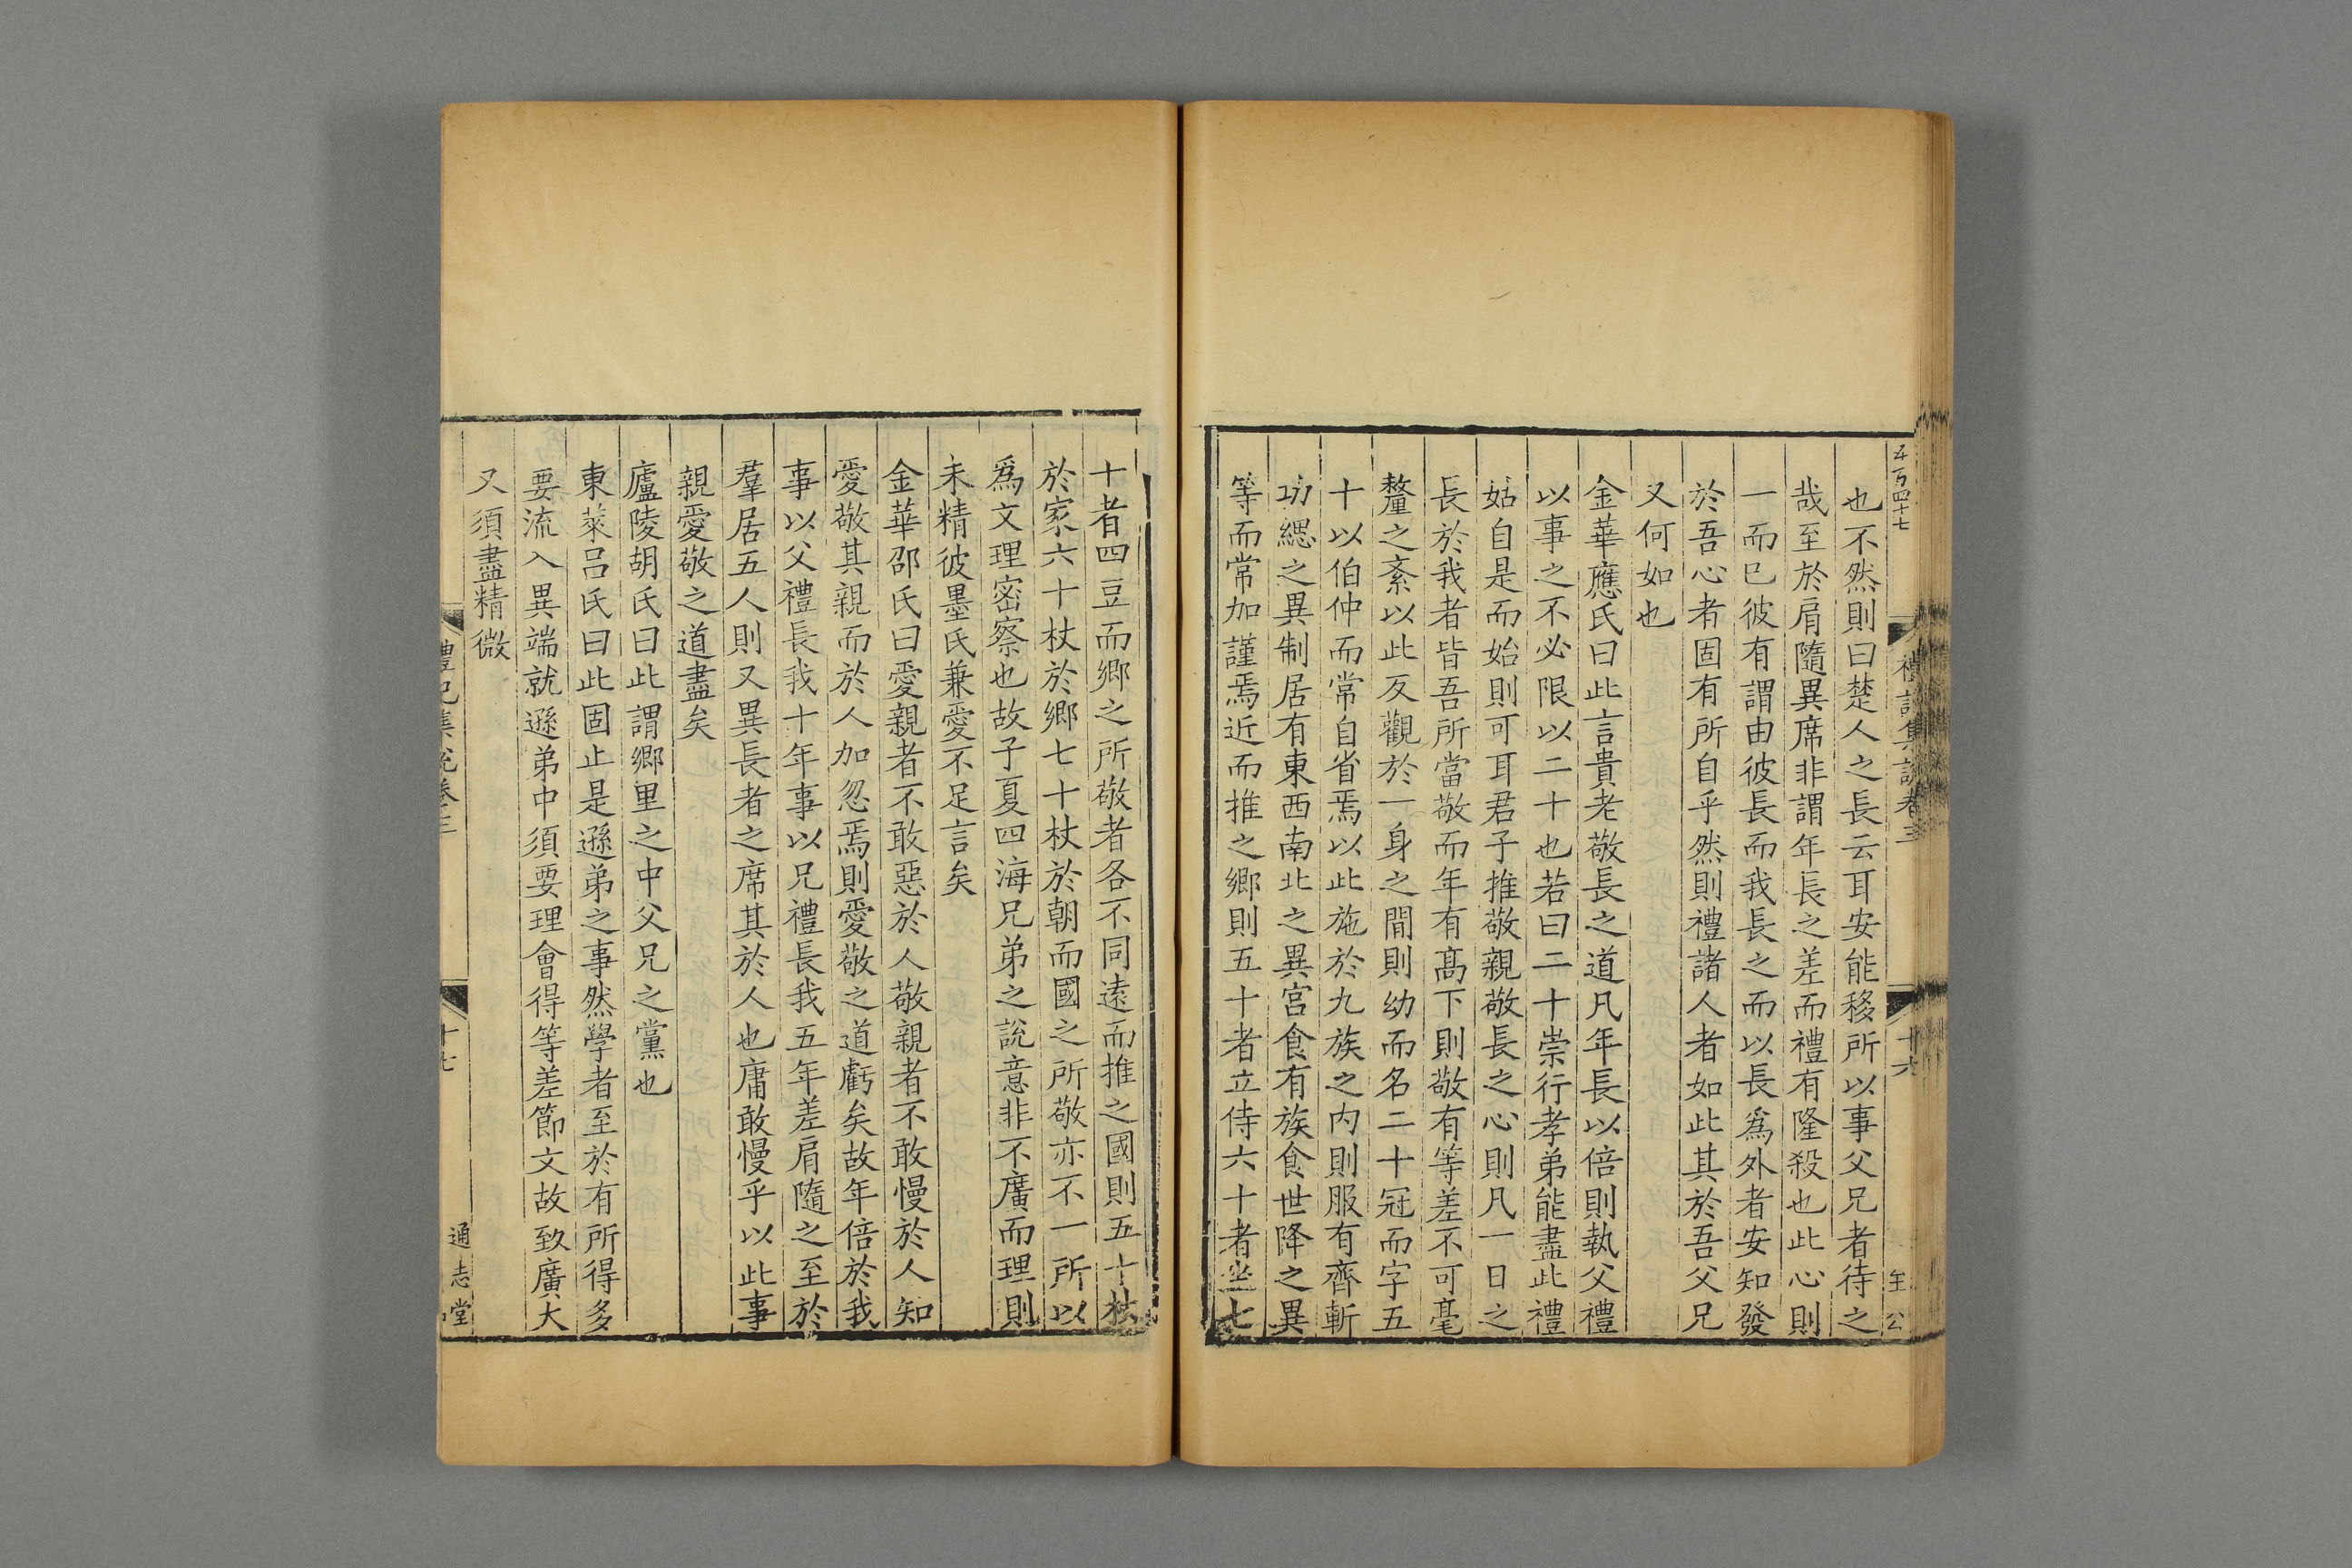 五百四十七
禮記集說卷三
十六
至公
也不然則曰楚人之長云耳安能移所以事父兄者待之
哉至於肩隨異席非謂年長之差而禮有隆殺也此心則
一而已彼有謂由彼長而我長之而以長爲外者安知發
於吾心者固有所自乎然則禮諸人者如此其於吾父兄
又何如也
金華應氏曰此言貴老敬長之道凡年長以倍則執父禮
以事之不必限以二十也若曰二十崇行孝弟能盡此禮
姑自是而始則可耳君子推敬親敬長之心則凡一日之
長於我者皆吾所當敬而年有髙下則敬有等差不可毫
釐之紊以此反觀於一身之間則幼而名二十冠而字五
十以伯仲而常自省焉以此施於九族之内則服有齊斬
功緦之異制居有東西南北之異宫食有族食世降之異
等而常加謹焉近而推之鄉則五十者立侍六十者坐七
十者四豆而鄉之所敬者各不同遠而推之國則五十杖
於家六十杖於鄉七十杖於朝而國之所敬亦不一所以
爲文理密察也故子夏四海兄弟之說意非不廣而理則
未精彼墨氏兼愛不足言矣
金華邵氏曰愛親者不敢惡於人敬親者不敢慢於人知
愛敬其親而於人加忽焉則愛敬之道虧矣故年倍於我
事以父禮長我十年事以兄禮長我五年差肩隨之至於
羣居五人則又異長者之席其於人也庸敢慢乎以此事
親愛敬之道盡矣
廬陵胡氏曰此謂鄉里之中父兄之黨也
東萊吕氏曰此固止是遜弟之事然學者至於有所得多
要流入異端就遜弟中須要理會得等差節文故致廣大
又須盡精微
禮記集說卷三
十七
通志堂